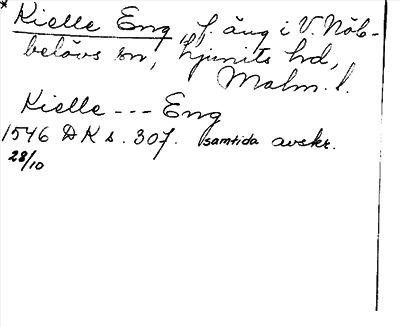 * Kielle Eng f. äng i V. Nöb-
belövs sn, Ljunits hd,
Malm. l.
Kielle --- Eng
1546 DK s. 307. samtida avskr.
28/10